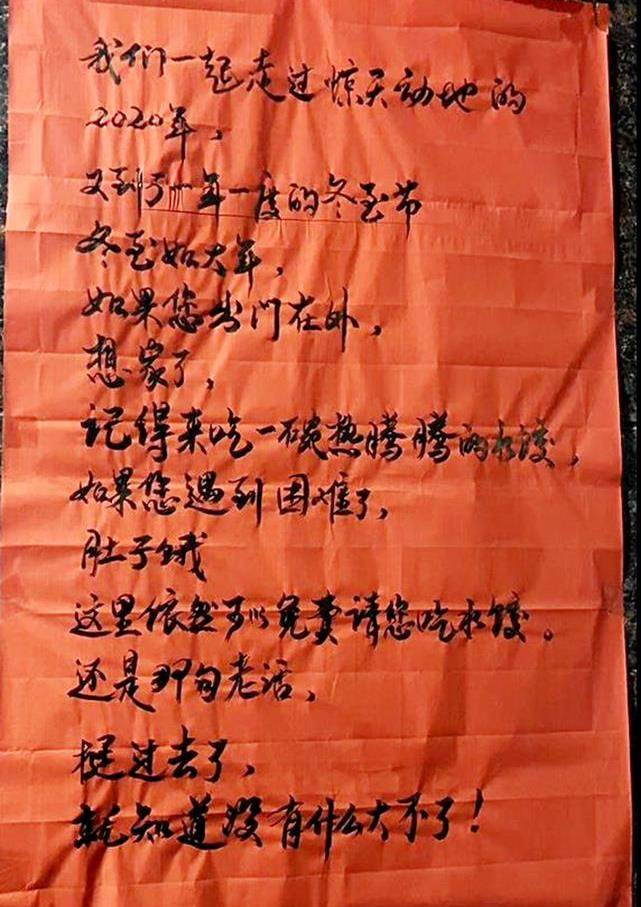 我们一起走过惊天动地的
2020年，
又到了一年一度的冬至节
冬至如大年，
如果您出门在外，
想家了，
记得来吃一碗热腾腾的水饺，
如果您遇到困难了，
肚子饿
这里依然可以免费请您吃水饺。
还是那句老话，
挺过去了，
就知道没有什么大不了！